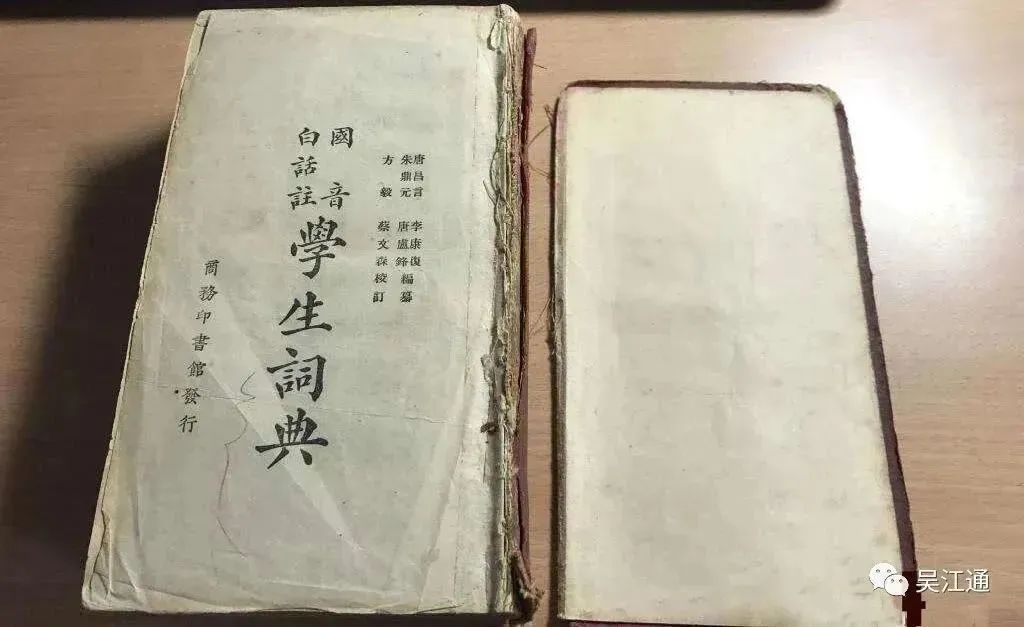 唐昌言 李康復
朱鼎元 唐盧鋒編纂
方毅 蔡文森校訂
國音
白話註
學生詞典
商務印書館發行
吴江通